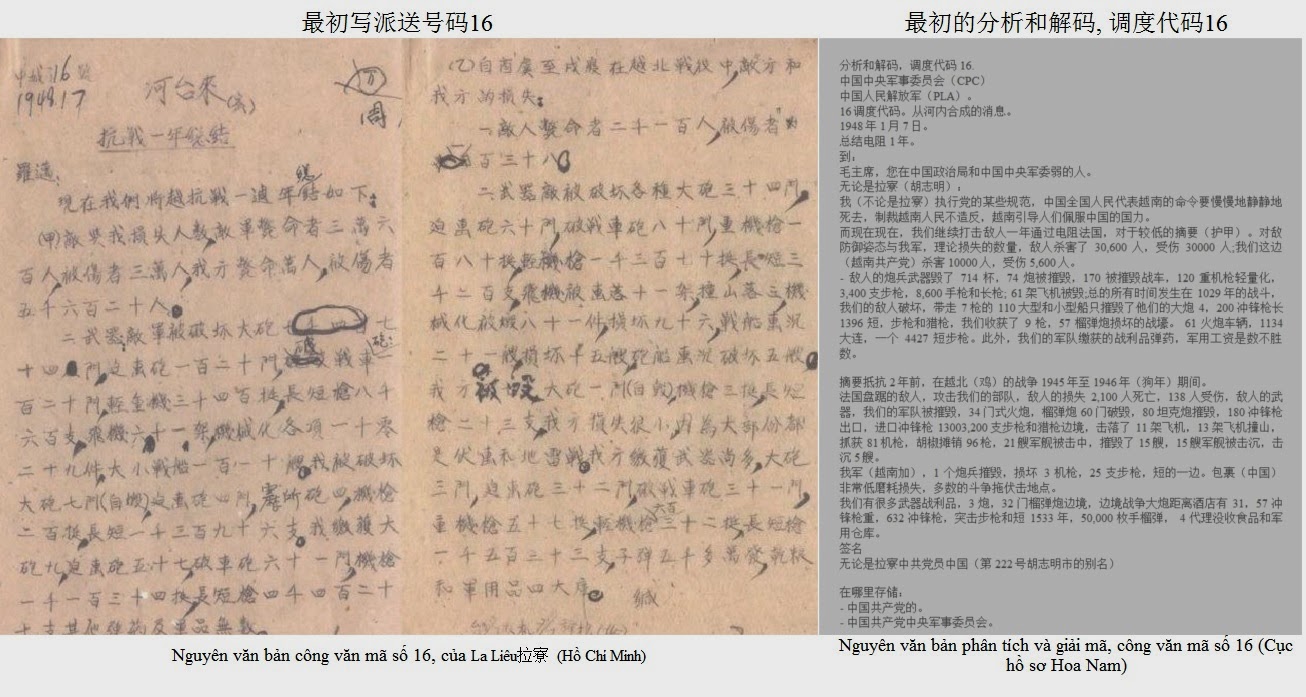 最初写派送号码16
最初的分析和解码, 调度代码16
16
1948.1.7
河台來
抗戰一年總結
現在我們將越抗戰一週年總結如下:
(甲)敵與我損失人數,敵軍斃命者三萬六
百人被傷者三萬人,我方斃命萬人,被傷者
五千六百二十人
二武器敵軍被破坏大砲 七
十四 門,迫击砲一百二十門 戰車
百二十門,輕重機三十四百挺長短槍八千
六百支飛機六十一架機械化各項一十零
二十九件大小戰艦一百一十艘我被破坏
大砲七門(自燬)迫击砲四門, 砲四,機槍
二百挺長短一千三百九十六支,我繳獲大
砲九,迫击砲五十七破車砲六十一門,機槍
一千一百三十四挺,長短槍四千四百二十
支其他 及軍品無數
(乙)自酉 至戌 在越北戰役中,敵方和
我方的損失:
一敵人斃命者二千一百人,被傷者
百三十八
二武器敵被破坏各種大砲三十四門,
迫击砲六十門,破戰車砲八十門,重機槍一
百八十挺輕機槍一千三百七十挺長短三
千二百支飛機被击落十一架,撞山落三機
械化被燬八十一件損坏九十六,戰船击沉
二十一艘損坏十五艘砲船击沉破坏五艘
我方被毀大砲一門(自毀)機槍三挺,長短
槍二十三支,我方損失很小,因為大部份都
是伏击和地雷戰,我方繳獲武器尚多,大砲
三門,迫击砲三十二門,破戰車砲三十一門,
重機槍五十七挺,輕機槍六百三十二挺,長短槍
一千五百三十三支,子弹五千多萬發,乾粮
和軍用品四大庫
分析和解码，调度代码 16.
中国中央军事委员会（CPC）
中国人民解放军（PLA）。
16 调度代码。从河内合成的消息。
1948 年 1 月 7 日。
总结电阻 1 年。
到：
毛主席，您在中国政治局和中国中央军委弱的人。
无论是拉寮（胡志明）：
我（不论是拉寮）执行党的某些规范，中国全国人民代表越南的命令要慢慢地静静地
死去，制裁越南人民不造反，越南引导人们佩服中国的国力。
而现在现在，我们继续打击敌人一年通过电阻法国，对于较低的摘要（护甲）。对敌
防御姿态与我军，理论损失的数量，敌人杀害了 30,600 人，受伤 30000 人;我们这边
（越南共产党）杀害 10000 人，受伤 5,600 人。
- 敌人的炮兵武器毁了 714 杯，74 炮被摧毁，170 被摧毁战车，120 重机枪轻量化，
3,400 支步枪，8,600 手枪和长枪; 61 架飞机被毁;总的所有时间发生在 1029 年的战斗，
我们的敌人破坏，带走 7 枪的 110 大型和小型船只摧毁了他们的大炮 4，200 冲锋枪长
1396 短，步枪和猎枪，我们收获了 9 枪，57 榴弹炮损坏的战壕。 61 火炮车辆，1134
大连，一个 4427 短步枪。此外，我们的军队缴获的战利品弹药，军用工资是数不胜
数。
摘要抵抗 2 年前，在越北（鸡）的战争 1945 年至 1946 年（狗年）期间。
法国盘踞的敌人，攻击我们的部队，敌人的损失 2,100 人死亡，138 人受伤，敌人的武
器，我们的军队被摧毁，34 门式火炮，榴弹炮 60 门破毁，80 坦克炮摧毁，180 冲锋枪
出口，进口冲锋枪 13003,200 支步枪和猎枪边境，击落了 11 架飞机，13 架飞机撞山，
抓获 81 机枪，胡椒摊销 96 枪，21 艘军舰被击中，摧毁了 15 艘，15 艘军舰被击沉，击
沉 5 艘。
我军（越南加），1 个炮兵摧毁，损坏 3 机枪，25 支步枪，短的一边。包裹（中国）
非常低磨耗损失，多数的斗争拖伏击地点。
我们有很多武器战利品，3 炮，32 门榴弹炮边境，边境战争大炮距离酒店有 31，57 冲
锋枪重，632 冲锋枪，突击步枪和短 1533 年，50,000 枚手榴弹， 4 代理没收食品和军
用仓库。
签名
无论是拉寮中共党员中国（第 222 号胡志明市的别名）
在哪里存储：
- 中国共产党的。
- 中国共产党中央军事委员会。
Nguyên văn bản công văn mã số 16, của La Liêu拉寮 (Hồ Chi Minh)
Nguyên văn bản phân tích và giải mã, công văn mã số 16 (Cục
hồ sơ Hoa Nam)